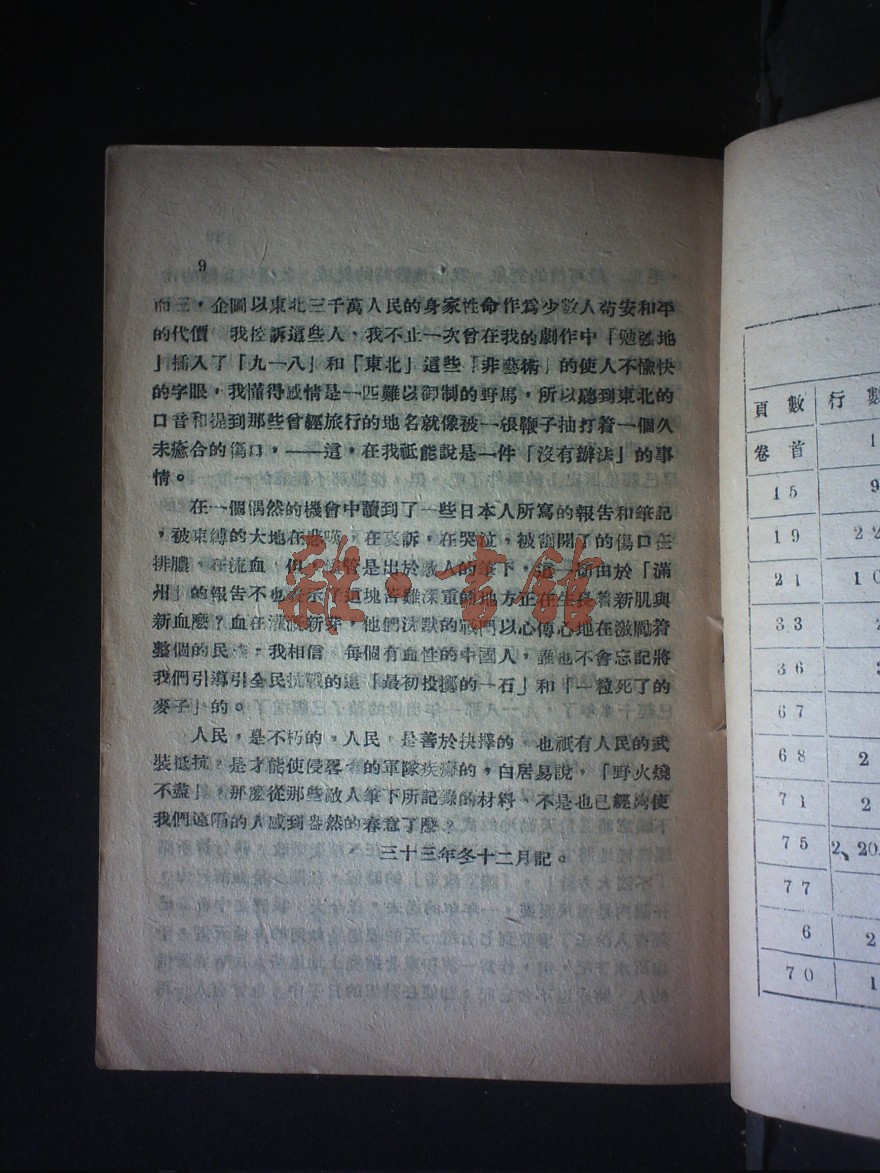 9
而三，企圖以東北三千萬人民的身家性命作爲少數人苟安和平
的代價 我控訴這些人，我不止一次曾在我的劇作中「勉强地
」插入了「九一八」和「東北」這些「非藝術」的使人不愉快
的字眼，我懂得感情是一匹難以御制的野馬，所以聽到東北的
口音和提到那些曾經旅行的地名就像被一根鞭子抽打着一個久
未癒合的傷口，——這，在我祗能說是一件「沒有辦法」的事
情。
在一個偶然的機會中讀到了一些日本人所寫的報告和筆記
，被束縛的大地在悲嘆，在哀訴，在哭泣，被割開了的傷口在
排膿，在流血 但，儘管是出於敵人的筆下，這一類由於「滿
州」的報告不也表示了這塊苦難深重的地方正在生長着新肌與
新血麼？血在灌漑新芽，他們沈默的戰鬥以心傳心地在激勵着
整個的民族，我相信 每個有血性的中國人，誰也不會忘記將
我們引導引全民抗戰的這「最初投擲的一石」和「一粒死了的
麥子」的。
人民，是不朽的，人民，是善於抉擇的，也祇有人民的武
裝抵抗，是才能使侵畧者的軍隊疾癘的，白居易說，「野火燒
不盡」，那麼從那些敵人筆下所記錄的材料，不是也已經夠使
我們遠隔的人感到盎然的春意了麼？
三十三年冬十二月記。
雜·書館
頁數 行數
卷首 1
15 9
19 22
21 10
33 2
36
67
68 2
71 2
75 2、20
77
6 2
70 1